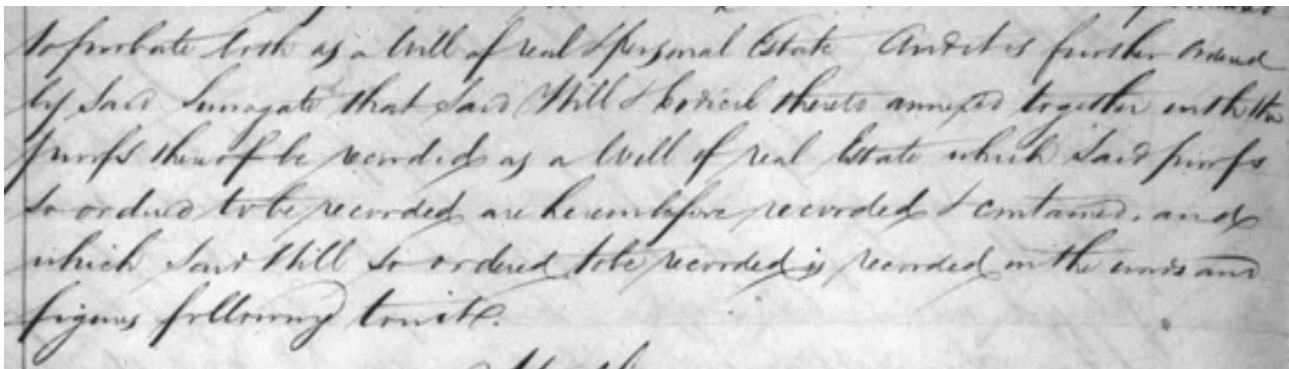 to probate both as a Will of real & personal Estate And it is further ordered
by said Surrogate that said Will & Codicil thereto annexed together with the
proofs thereof be recorded as a Will of real Estate which said proofs
so ordered to be recorded are hereinbefore recorded & contained, and
which said Will so ordered to be recorded is recorded in the words and
figures following towit.